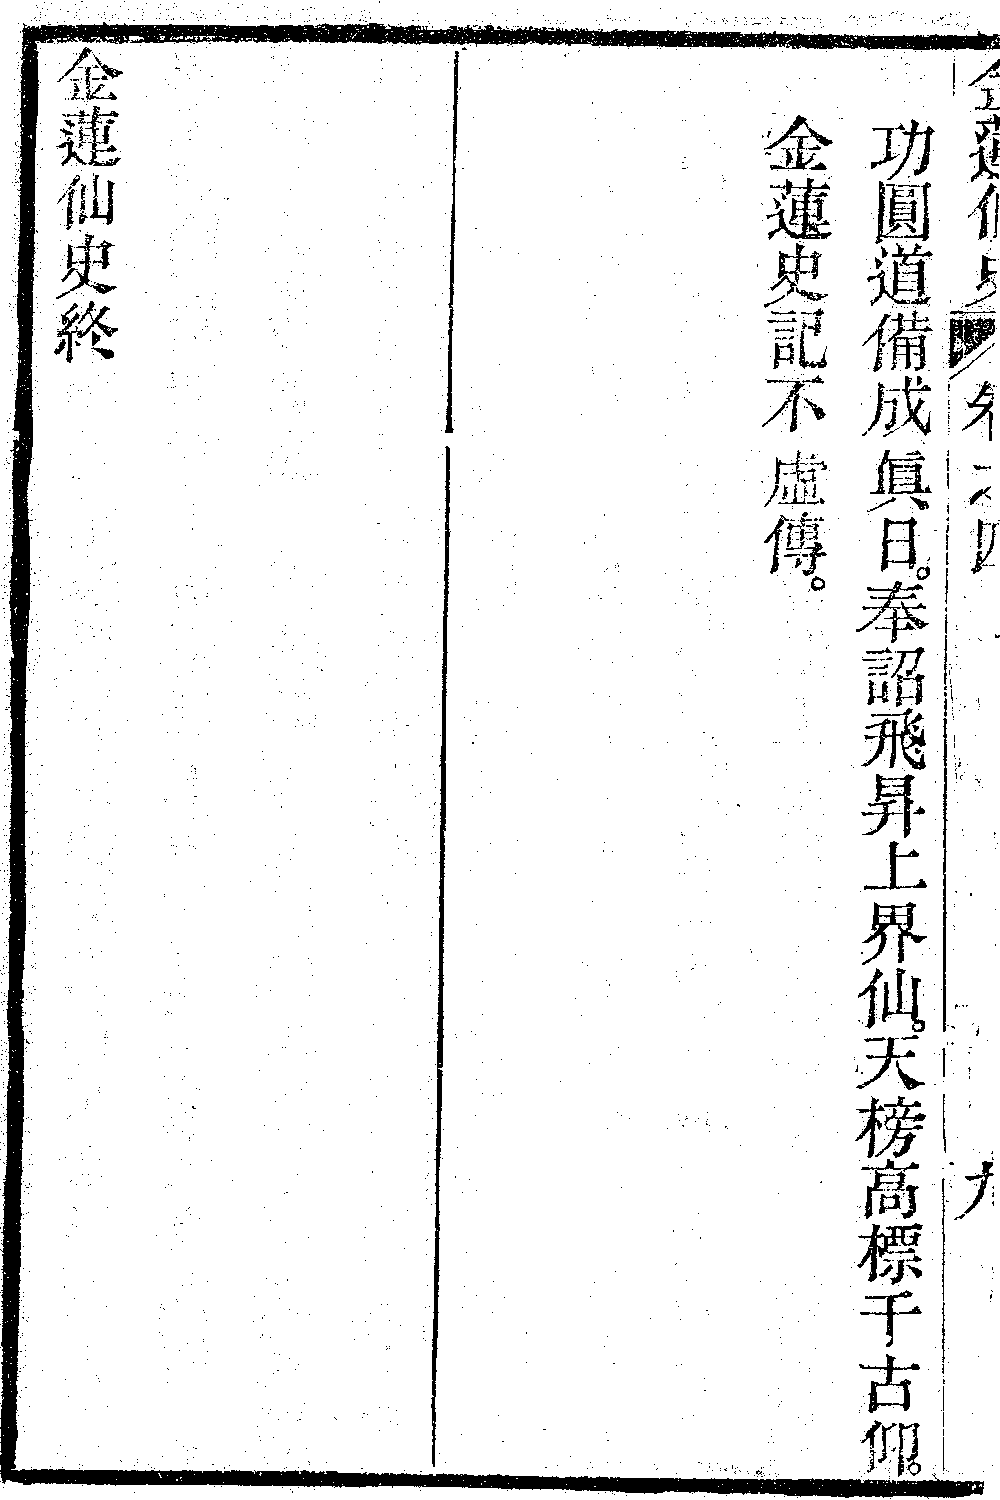 金蓮仙史 卷之四 九
功圓道備成眞日。奉詔飛昇上界仙。天榜高標千古仰。
金蓮史記不虛傳。
金蓮仙史終